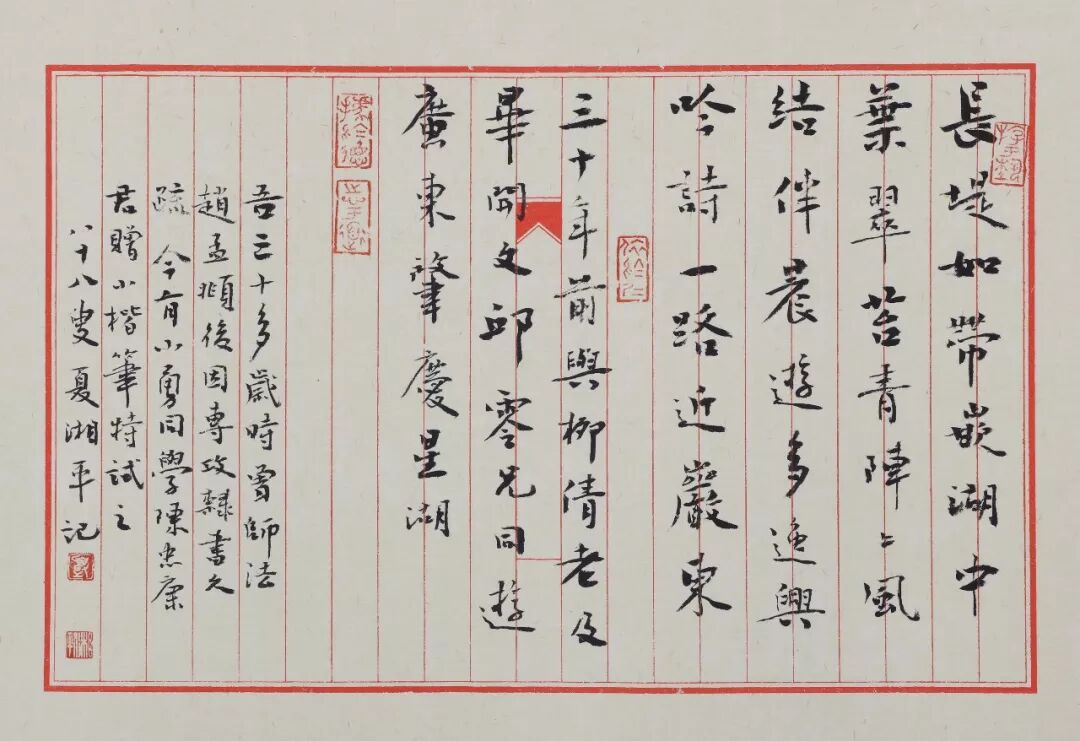 長堤如帶嵌湖中
葉翠苔青陣〻風
結伴晨遊多逸興
吟詩一路近巖東
三十年前與柳倩老及
畢開文邱零兄同遊
廣東肇慶星湖
吾三十多歲時曾師法
趙孟頫後因專攻隸書久
疏今有小勇同學陳忠康
君贈小楷筆特試之
八十八叟夏湘平記